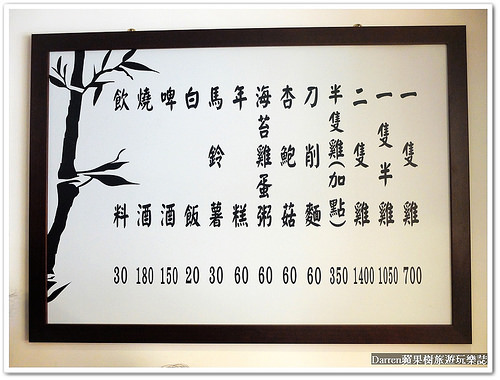 一隻雞 700
一隻半雞 1050
二隻雞 1400
半隻雞(加點) 350
刀削麵 60
杏鮑菇 60
海苔雞蛋粥 60
年糕 60
馬鈴薯 30
白飯 20
啤酒 150
燒酒 180
飲料 30
Darren蘋果樹旅遊玩樂誌